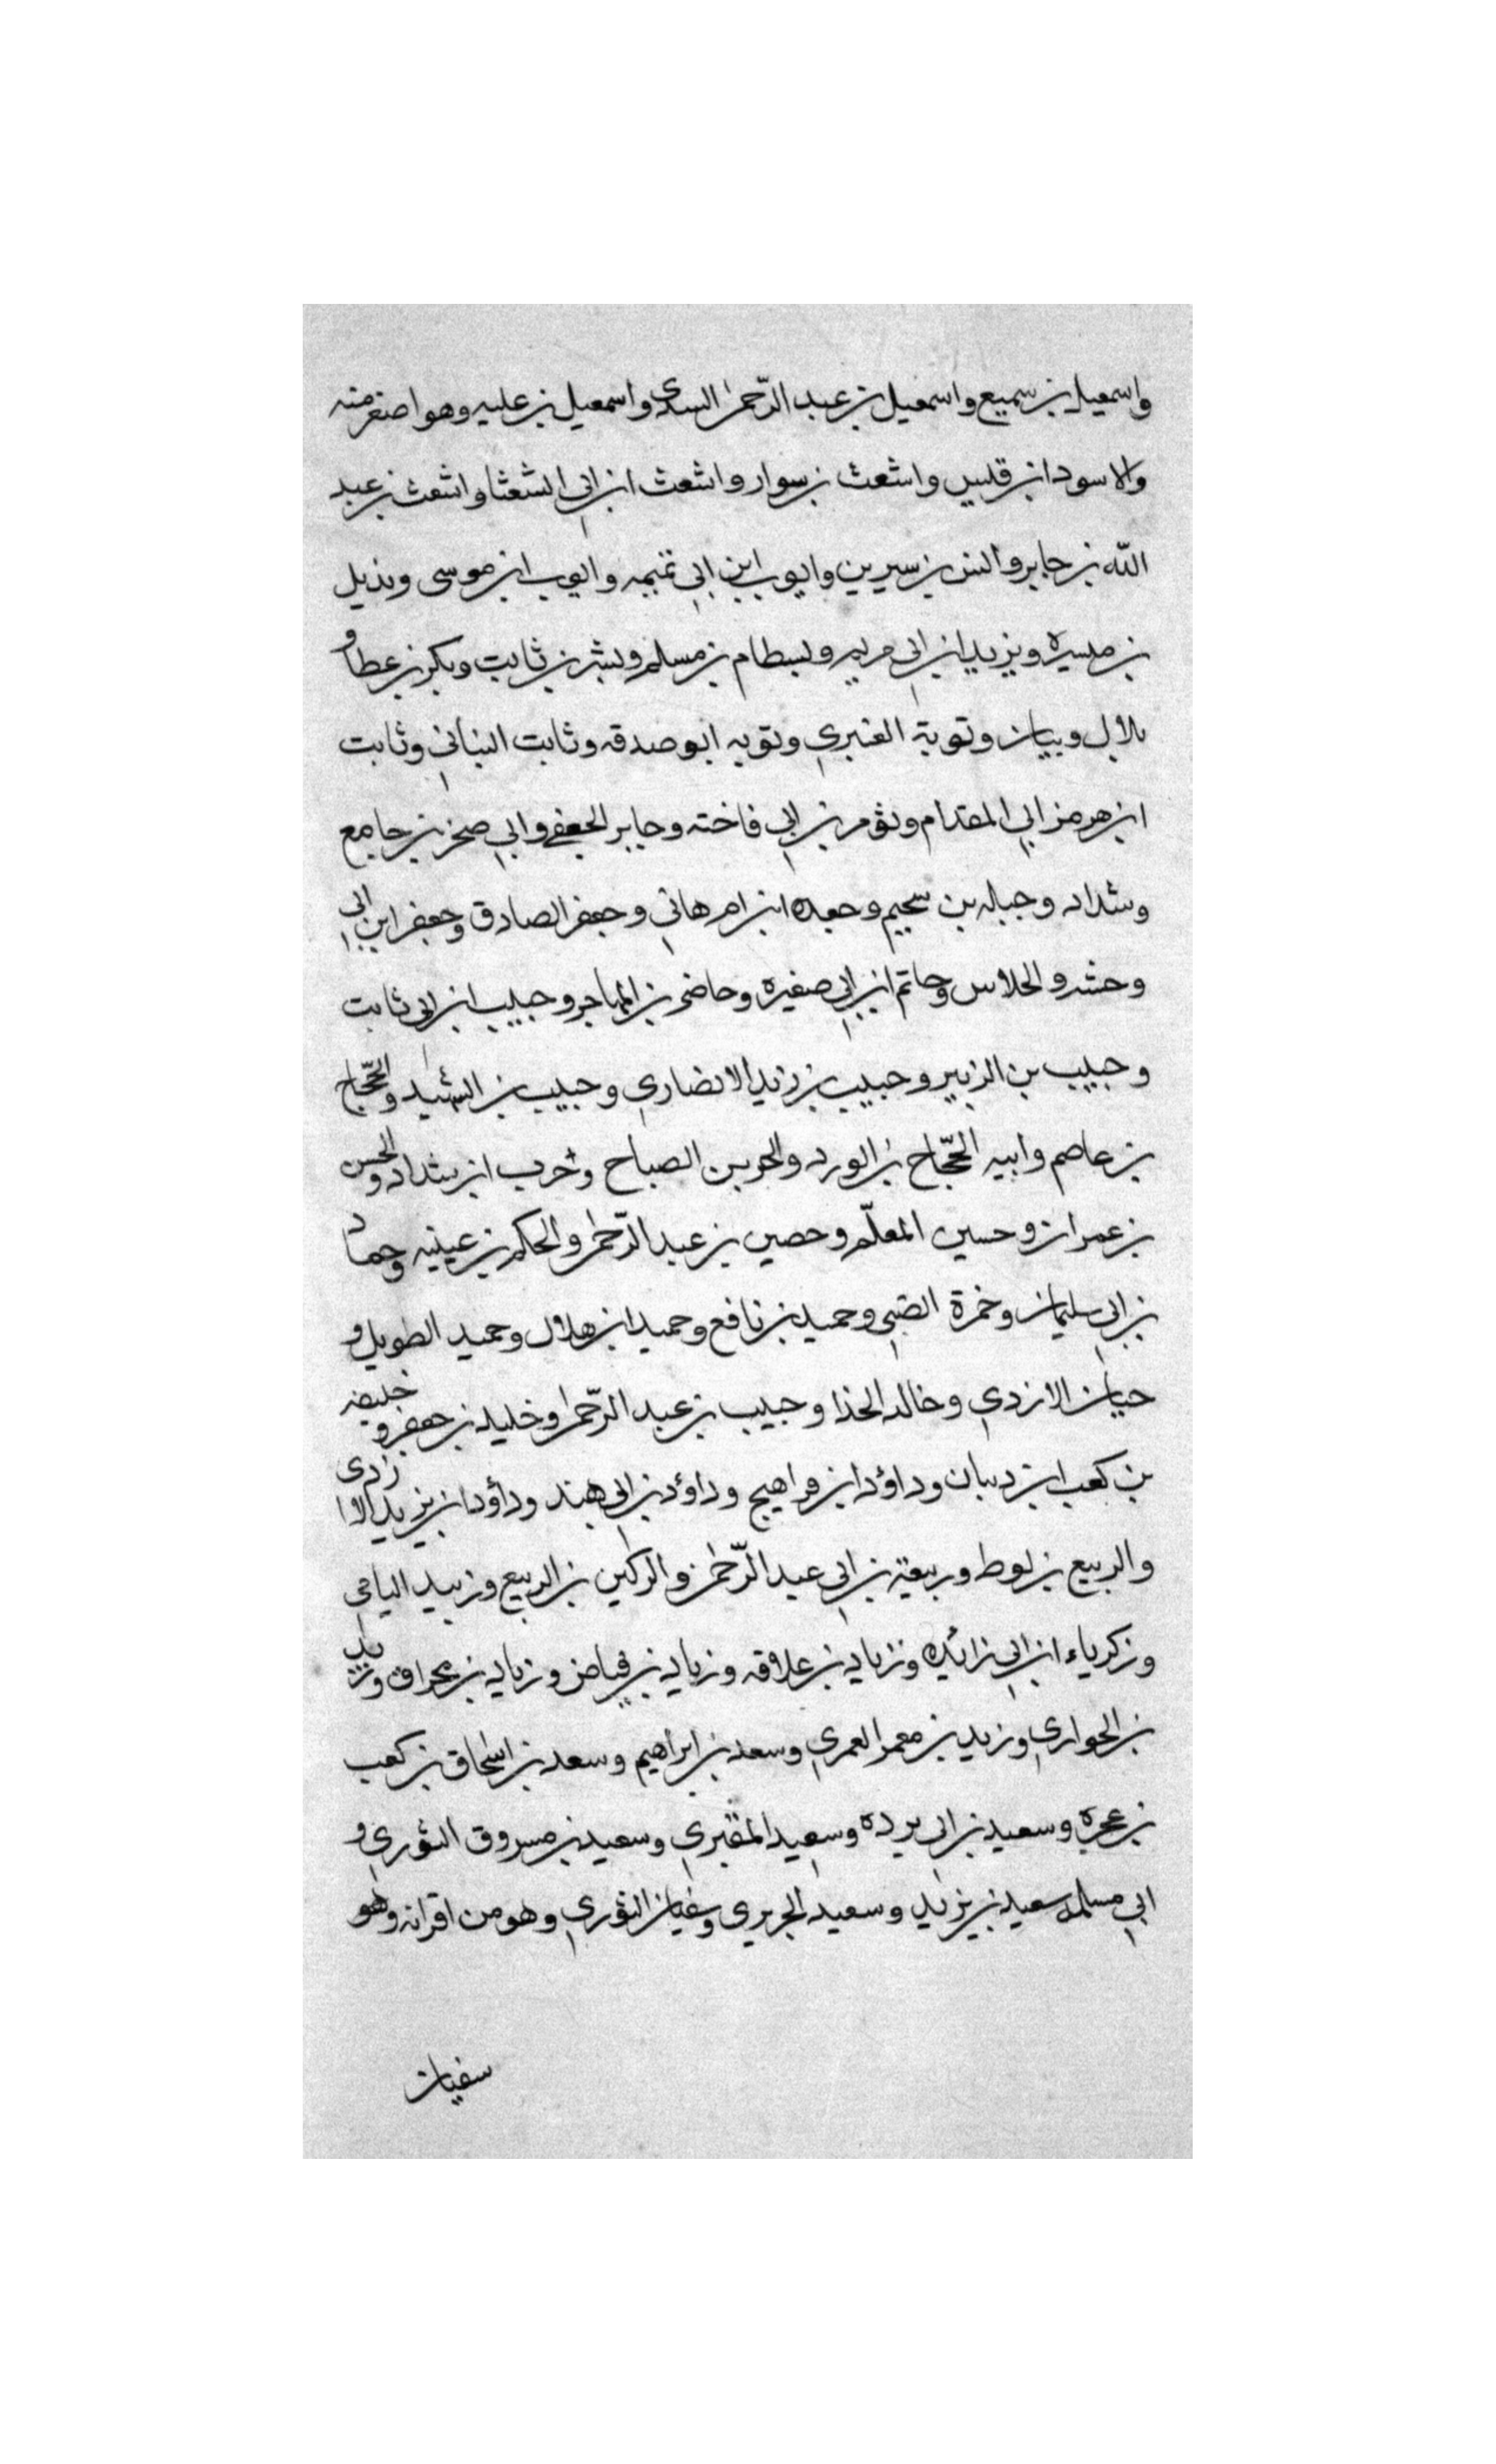 واسمعيل بن سميع واسمعيل بن عبد الرّحمن السدي واسمعيل بن عليه وهو اصغر منه
والاسود ابن قليس واشعث بن سوار واشعث ابن ابي الشعثا واشعث بن عبد
اللّه بن جابر وانس بن سيرين وايوب ابن ابي تميمه وايوب ابن موسى وبذيل
بن ميسره ويزيد ابن ابي مريم وبسطام بن مسلم وبشر بن ثابت وبكر بن عطا و
بلال وبيان وتوبة العنبري وتوبه ابو صدقه وثابت البناني وثابت
ابن هرمز ابي المقدام وثوير بن ابي فاخته وجابر الجعفي وابي صخر بن جامع
وشداد وجباله بن سحيم وجعده ابن ام هاني وجعفر الصادق وجعفر ابن ابي
وحشه والحلاس وحاتم ابن ابي صغيره وحاضر بن المهاجر وحبيب ابن ابي ثابت
وحبيب بن الزبير وحبيب بن زيد الانصاري وحبيب بن الشهيد والحجّاج
بن عاصم وابيه الحجّاج بن الورد والحر بن الصباح وحرب ابن شداد والحسن
بن عمران وحسين المعلّم وحصين بن عبد الرّحمن والحكم بن عينيه وحماد
بن ابي سليمان وحمزة الضبي وحميد بن نافع وحميد ابن هلال وحميد الطويل و
حيان الازدي وخالد الحذا وحبيب بن عبد الرّحمن وخليد بن جعفر و خليفه
بن كعب ابن دبيان وداؤد ابن فراهيج وداؤد بن ابي هند وداؤد ابن يزيد الا زدي
والربيع بن لوط وربيعة بن ابي عبد الرّحمن والركين بن الربيع وزبيد اليامي
وزكرياء ابن ابي زائده وزياد بن علاقه وزياد بن فياض وزياد بن مخراق وزيد
بن الحواري وزيد بن معمر العمري وسعد بن ابراهيم وسعد بن اسحاق بن كعب
بن عجره وسعيد بن ابي برده وسعيد المقبري وسعيد بن مسروق الثوري و
ابي مسلمه سعيد بن يزيد وسعيد الجريري وسفيان الثوري وهو من اقرانه وهو
سفيان